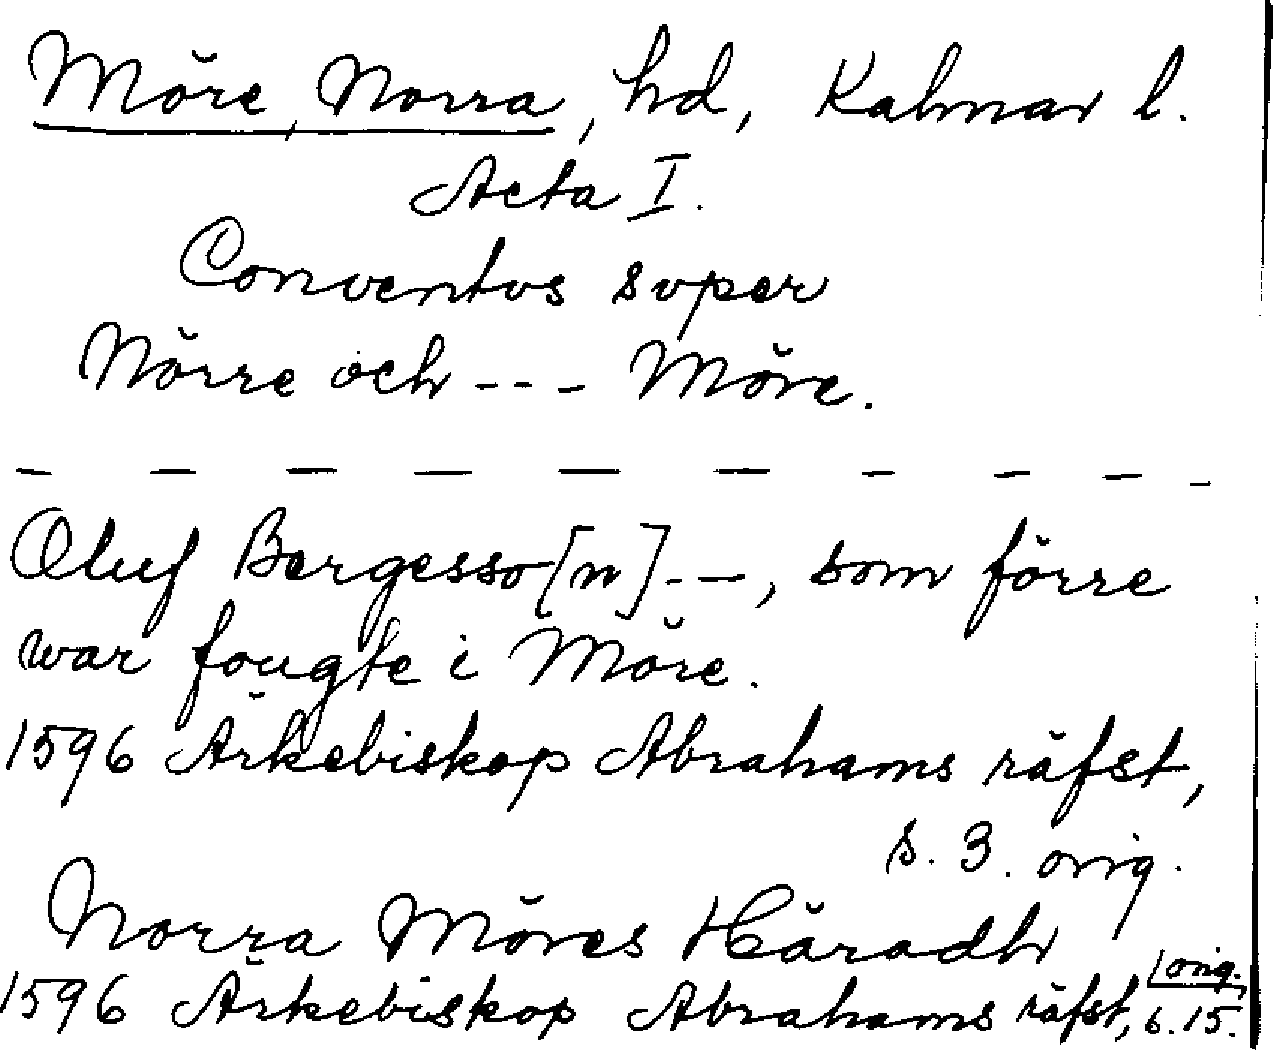 Möre, Norra, hd, Kalmar l.
Acta I.
Conventus super
Nörre och --- Möre.
— — — — — — — — — —
Oluf Bergesso[n] - —, som förre
war fougte i Möre.
1596 Ärkebiskop Abrahams räfst,
s. 3. orig.
Norra Möres Häradh
1596 Ärkebiskop Abrahams räfst, s. 15. orig.